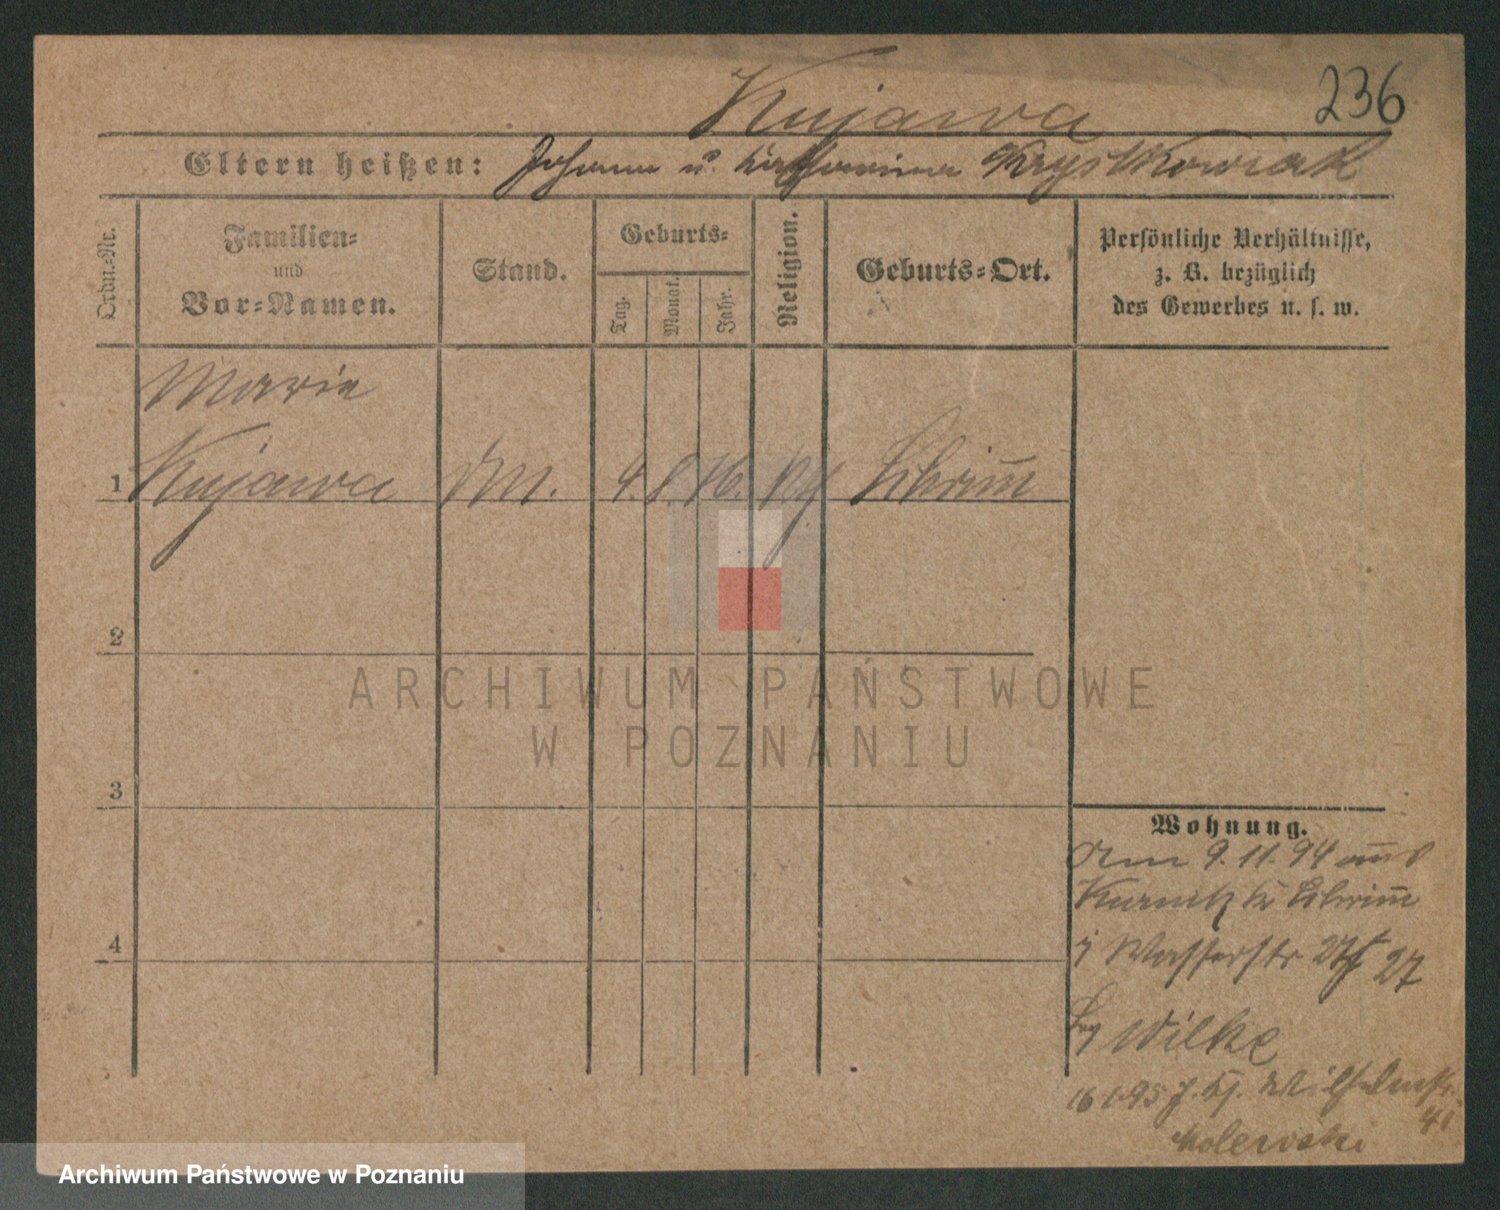 236
Kujawa
Eltern heißen: Johann u. Katharina Krystkowiak
Ordn.-Nr.
Familien-
und
Vor-Namen.
Stand.
Geburts-
Tag.
Monat.
Jahr.
Religion.
Geburts-Ort.
Persönliche Verhältnisse,
z. B. bezüglich
des Gewerbes u. s. w.
Marie
1 Kujawa 4. 8. 76. Schrim̅
2
3
4
ARCHIWUM PAŃSTWOWE
W POZNANIU
Wohnung.
9. 11. 94 aus
Kurnik Kr Schrim̅
Wasserstr 27
Wilke
16 1 95 Wilhelmstr.
41
Archiwum Państwowe w Poznaniu